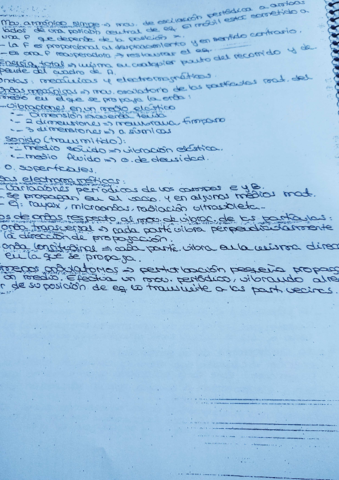 Mov armónico simple → mov. de oscilación periódica a ambos
lados de una posición neutral de eq. El móvil está sometido a
una F que depende de la posición →
- La F es proporcional al desplazamiento y en sentido contrario.
- Es una F recuperadora → restaurar el eq.
Energía total → misma en cualquier punto del recorrido y de
pende del cuadro de A.
Ondas: mecánicas y electromagnéticas.
Ondas mecánicas → mov. oscilatorio de las partículas mat. del
medio en el que se propaga la onda:
- Vibraciones en un medio elástico
- 1 dimensión → cuerda tensa
- 2 dimensiones → membrana tímpano
- 3 dimensiones → o. sísmicas
Sonido (transmitido):
- medio sólido → vibración elástica.
- medio fluido → o. de densidad.
O. superficiales.
electromagnéticas:
- Variaciones periódicas de los campos E y B.
- Se propagan en el vacío y en algunos medios mat.
- Ej. rayos, microondas, radiación ultravioleta.
de ondas respecto al mov. de vibrac. de las partículas:
onda transversal → cada part. vibra perpendicularmente
la dirección de propagación.
onda longitudinal → cada part. vibra en la misma direc
en la que se propaga.
ondulatorios → perturbación pequeña propag
un medio. Efectúa un mov. periódico, vibrando alre
r de su posición de eq. lo transmite a las part. vecinas.